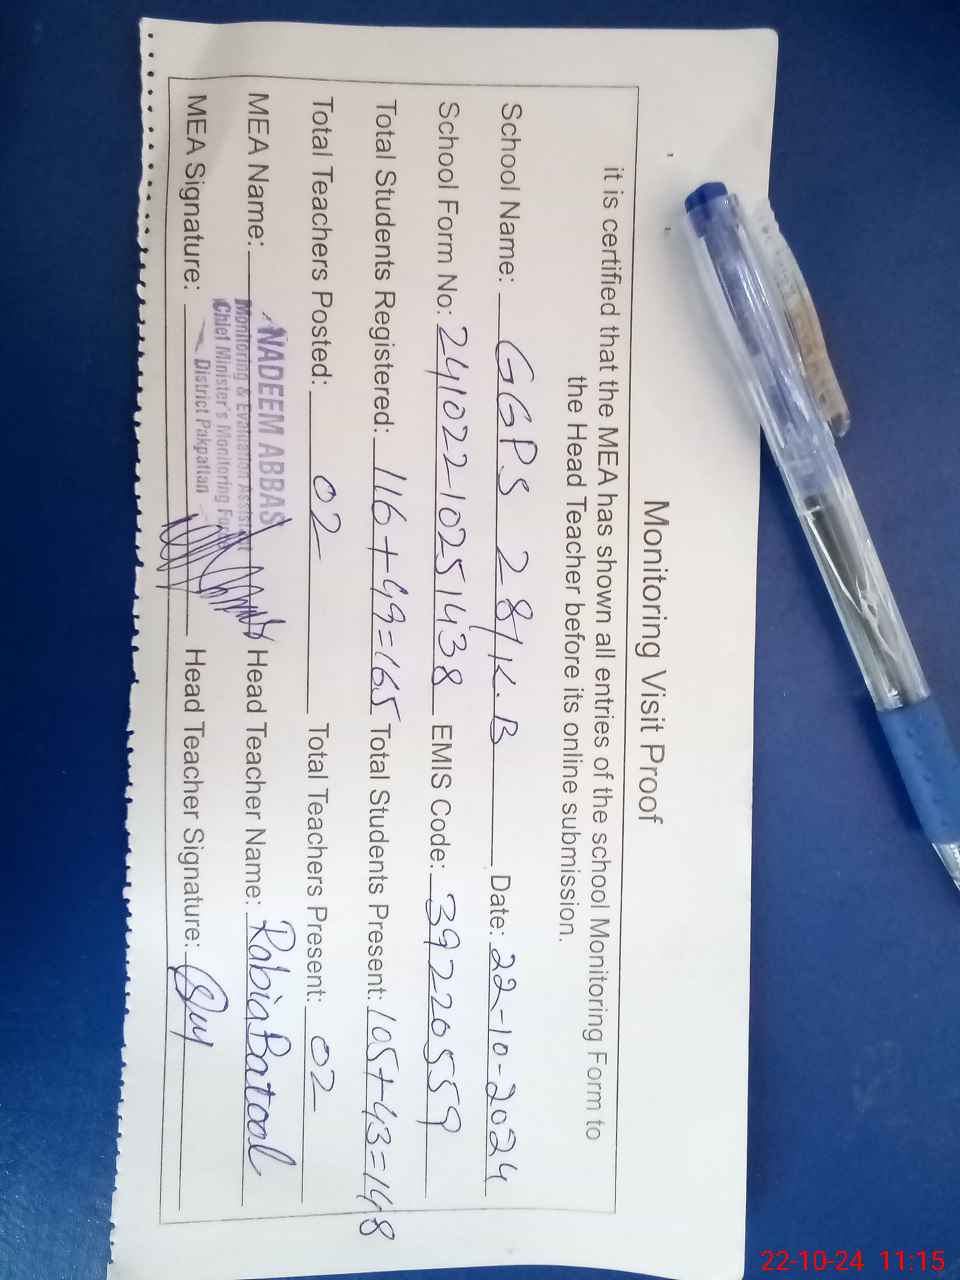 Monitoring Visit Proof
it is certified that the MEA has shown all entries of the school Monitoring Form to
the Head Teacher before its online submission.
School Name: GGPS 28/K.B Date: 22-10-2024
School Form No: 241022102514 38 EMIS Code: 39220559
Total Students Registered: 116+49=165 Total Students Present: 105+43=148
Total Teachers Posted: 02 Total Teachers Present: 02
MEA Name: NADEEM ABBAS Head Teacher Name: Rabia Batool
Monitoring & Evaluation Assistant
Chief Minister's Monitoring Force
District Pakpattan
MEA Signature: Head Teacher Signature:
22-10-24 11:15